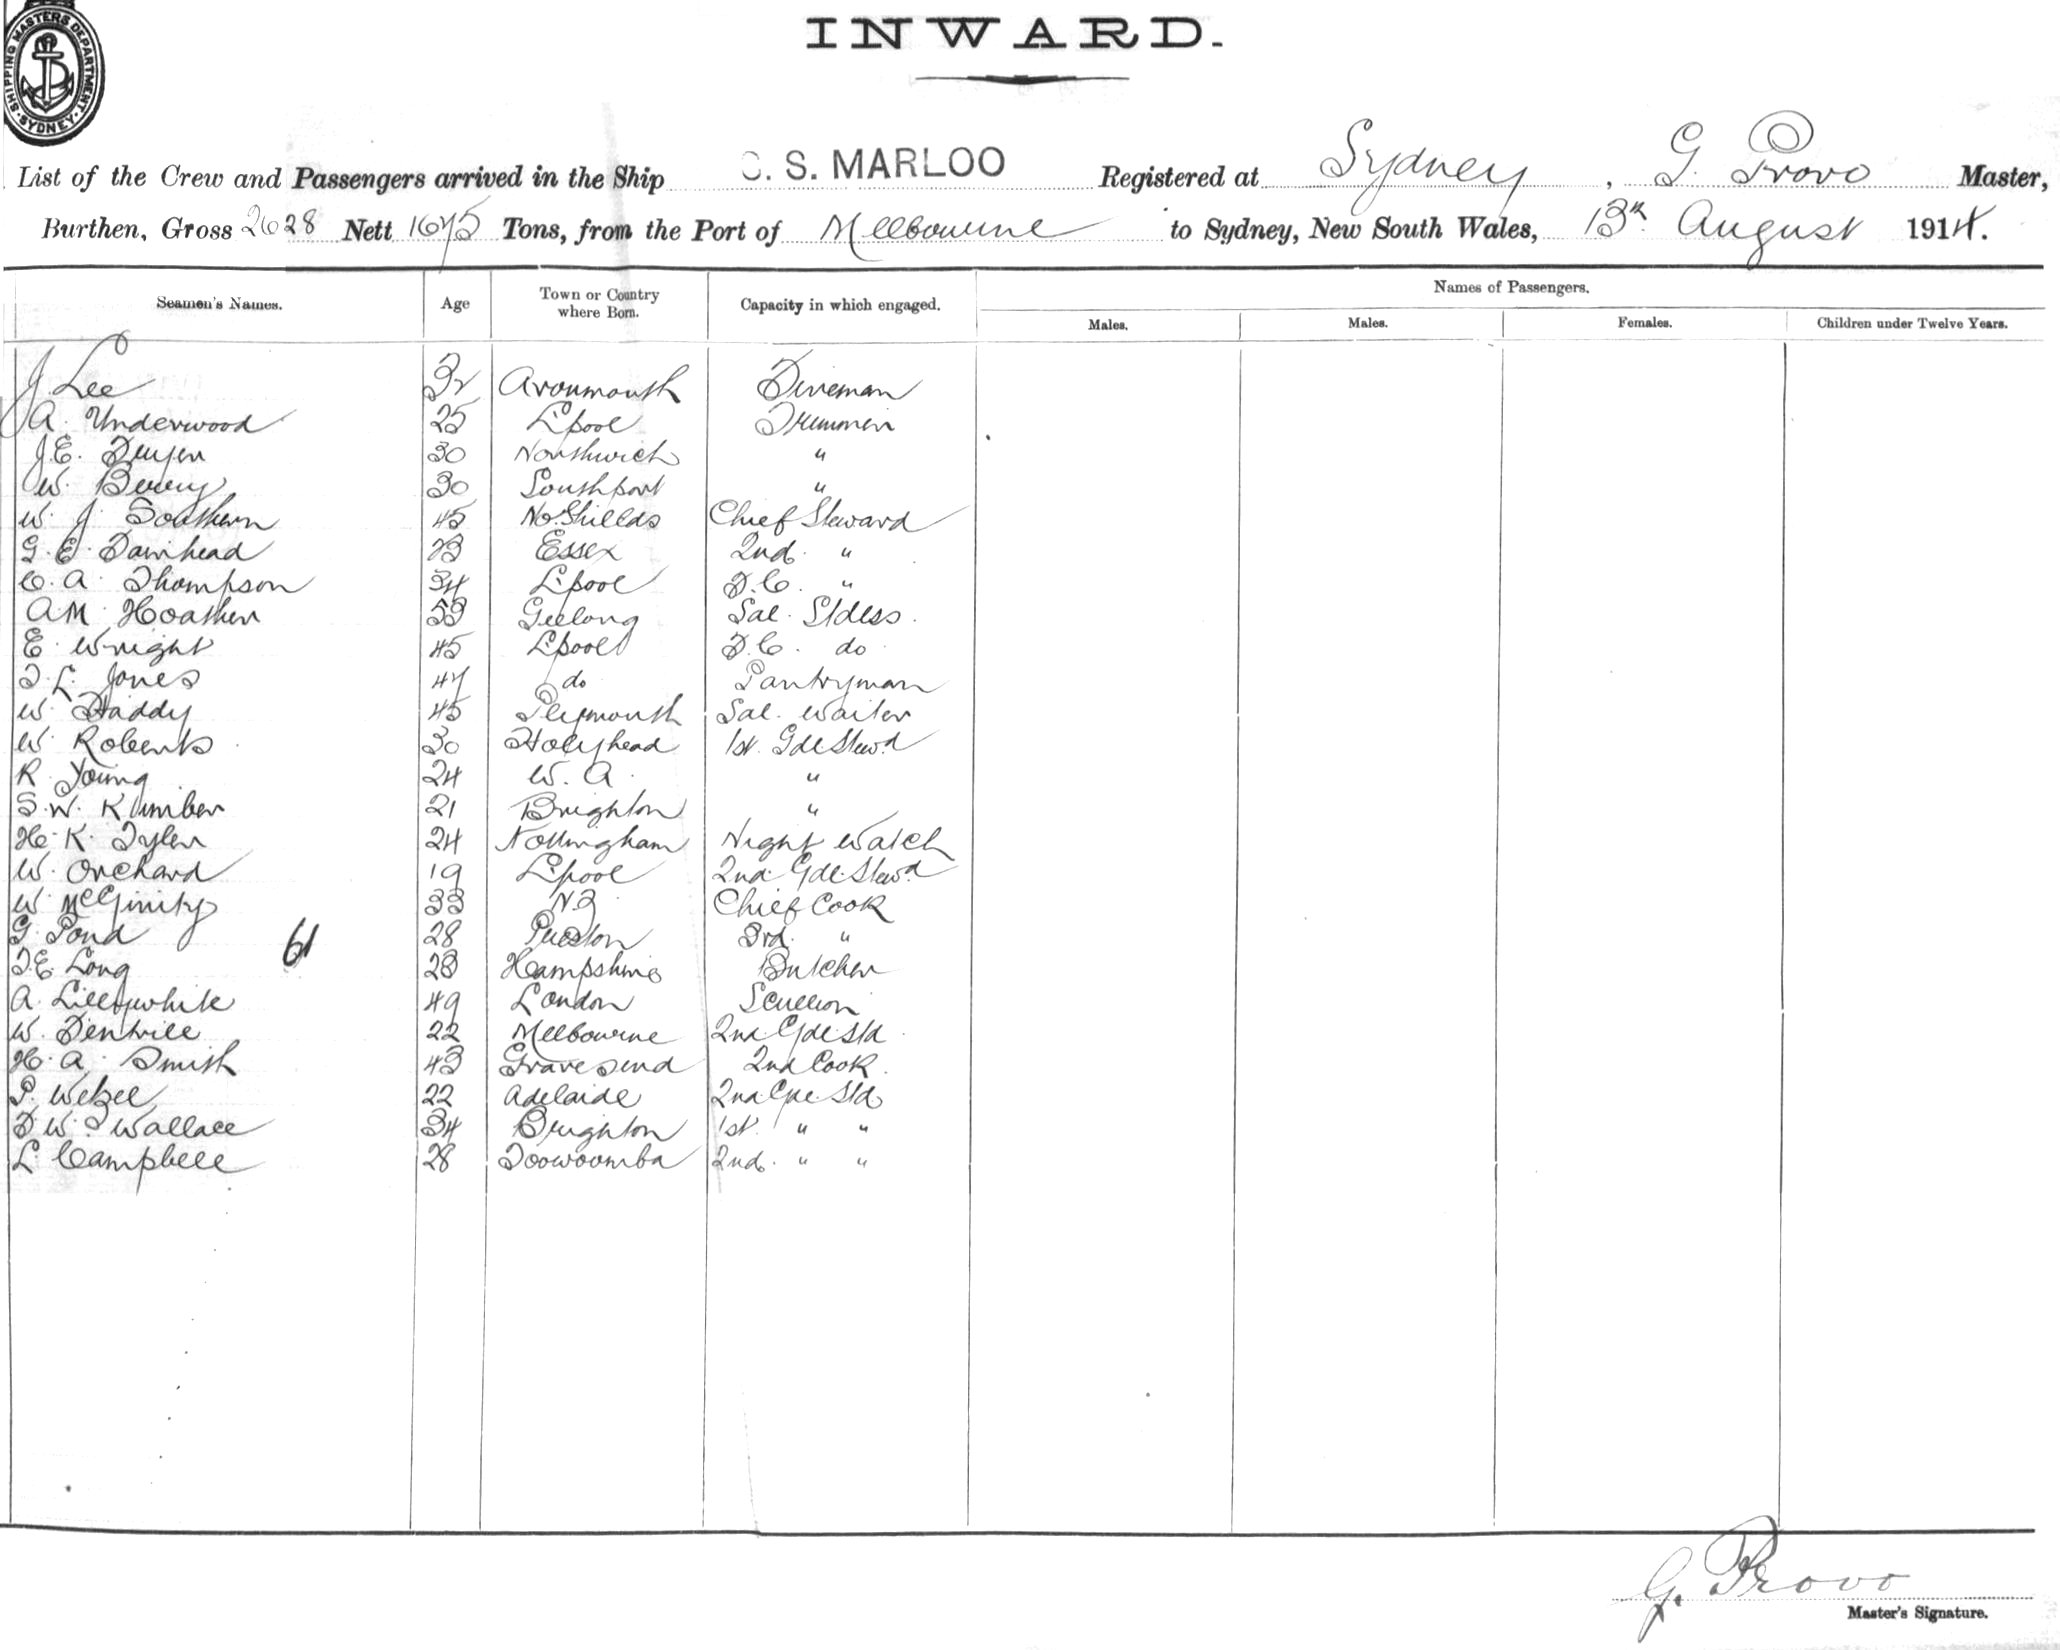 SHIPPING MASTERS DEPARTMENT. SYDNEY.
INWARD.
List of the Crew and Passengers arrived in the Ship S. MARLOO Registered at Sydney, G. Provo Master,
Burthen, Gross 2628 Nett 1675 Tons, from the Port of Melbourne to Sydney, New South Wales, 13th August 1914.
Names of Passengers.
Seamen's Names. Age Town or Country where Born. Capacity in which engaged. Males. Males. Females. Children under Twelve Years.
J Lee 32 Avonmouth Fireman
A. Underwood 25 L'pool Trimmer
J.E. 30 Northwich "
W. Berry 30 Southport "
W. J. Southern 45 No. Shields Chief Steward
G. E. Fairhead 23 Essex 2nd. "
C. A. Thompson 34 L'pool F.C. "
A M Hoathen 53 Geelong Sal. Stdess.
E. Wright 45 L'pool F.C. do
T. L. Jones 47 do Pantryman
W. Haddy 45 Plymouth Sal. Waiter
W. Roberts 30 Holyhead 1st. Gde Stewd
R Young 24 W. A. "
S. W. Kimber 21 Brighton "
H. K. Tyler 24 Nottingham Night Watch
W. Orchard 19 L'pool 2nd. Gde. Stewd
W. McGinity 33 N.Z Chief Cook
G. Pond 28 Preston 3rd. "
61
T.E. Long 28 Hampshire Butcher
A. Lillywhite 49 London Scullion
W. Dentrill 22 Melbourne 2nd. Gde. Std.
H. A. Smith 43 Gravesend 2nd Cook.
P. Wetzel 22 Adelaide 2nd. Gde. Std.
F. W. Wallace 34 Brighton 1st. " "
L. Campbell 28 Toowoomba 2nd. " "
G. Provo
Master's Signature.